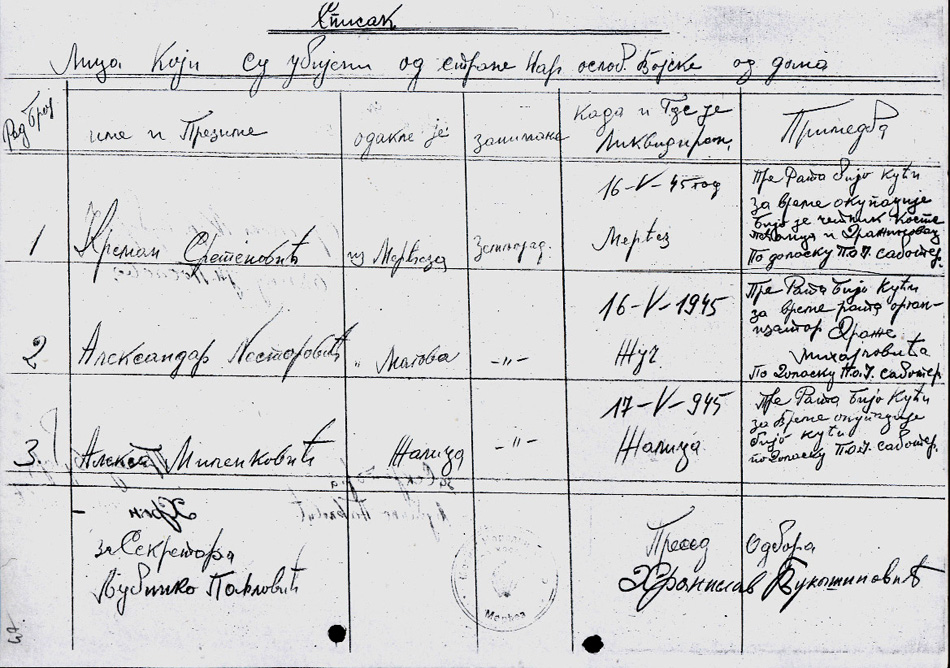 Списак
Лица који су убијени од стране Нар ослоб Војске од дома
Ред број
име и Презиме
одакле је
занимање
када и Где је
Ликвидиран,
Примедба
1
Сретеновић
из Мерћеза
Земљорад.
16-V-45 год
Мерћез
Пре Рата био кући
за време окупације
био је четник Косте
По доласку П.О.Ј. саботер.
2
Александар Несторовић
" Матова
-"-
16-V-1945
Жуч
Пре Рата био кући
за време рата орган-
изатор Драже
Михајловића
По доласку П.О.Ј. саботер
3.
Миленковић
Жалица
-"-
17-V-945
Жалица
Пре Рата био кући
за време окупације
био кући
по доласку П.О.Ј. саботер.
за Секретара
Љубинко Павловић
Мерћез
Пресед Одбора
Хранислав Вукашиновић